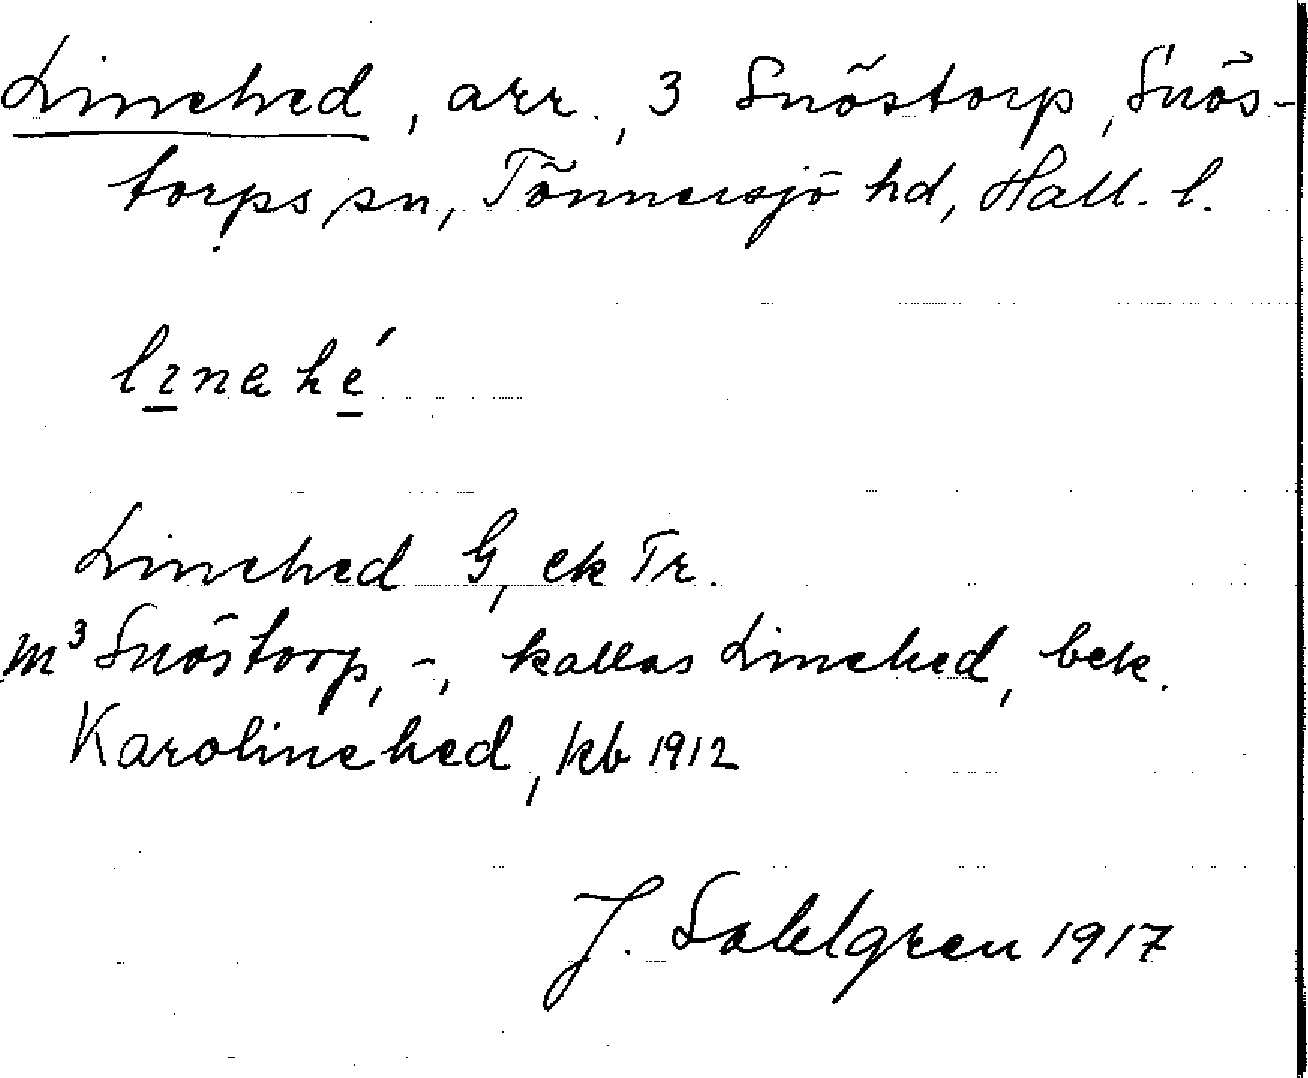 Linehed, arr., 3 Snöstorp, Snös-
torps sn, Tönnersjö hd, Hall. l.
lınahé
Linehed G, ek Tr.
m³ Snöstorp, -, kallas Linehed, bek.
Karolinehed, kb 1912
J. Sahlgren 1917